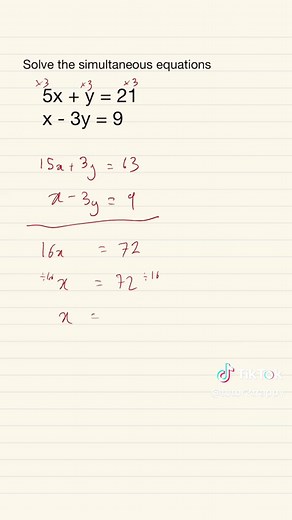 Solve the simultaneous equations
×3 ×3 ×3
5x + y = 21
x - 3y = 9
15x + 3y = 63
x - 3y = 9
16x = 72
÷16 x = 72 ÷16
x =
TikTok